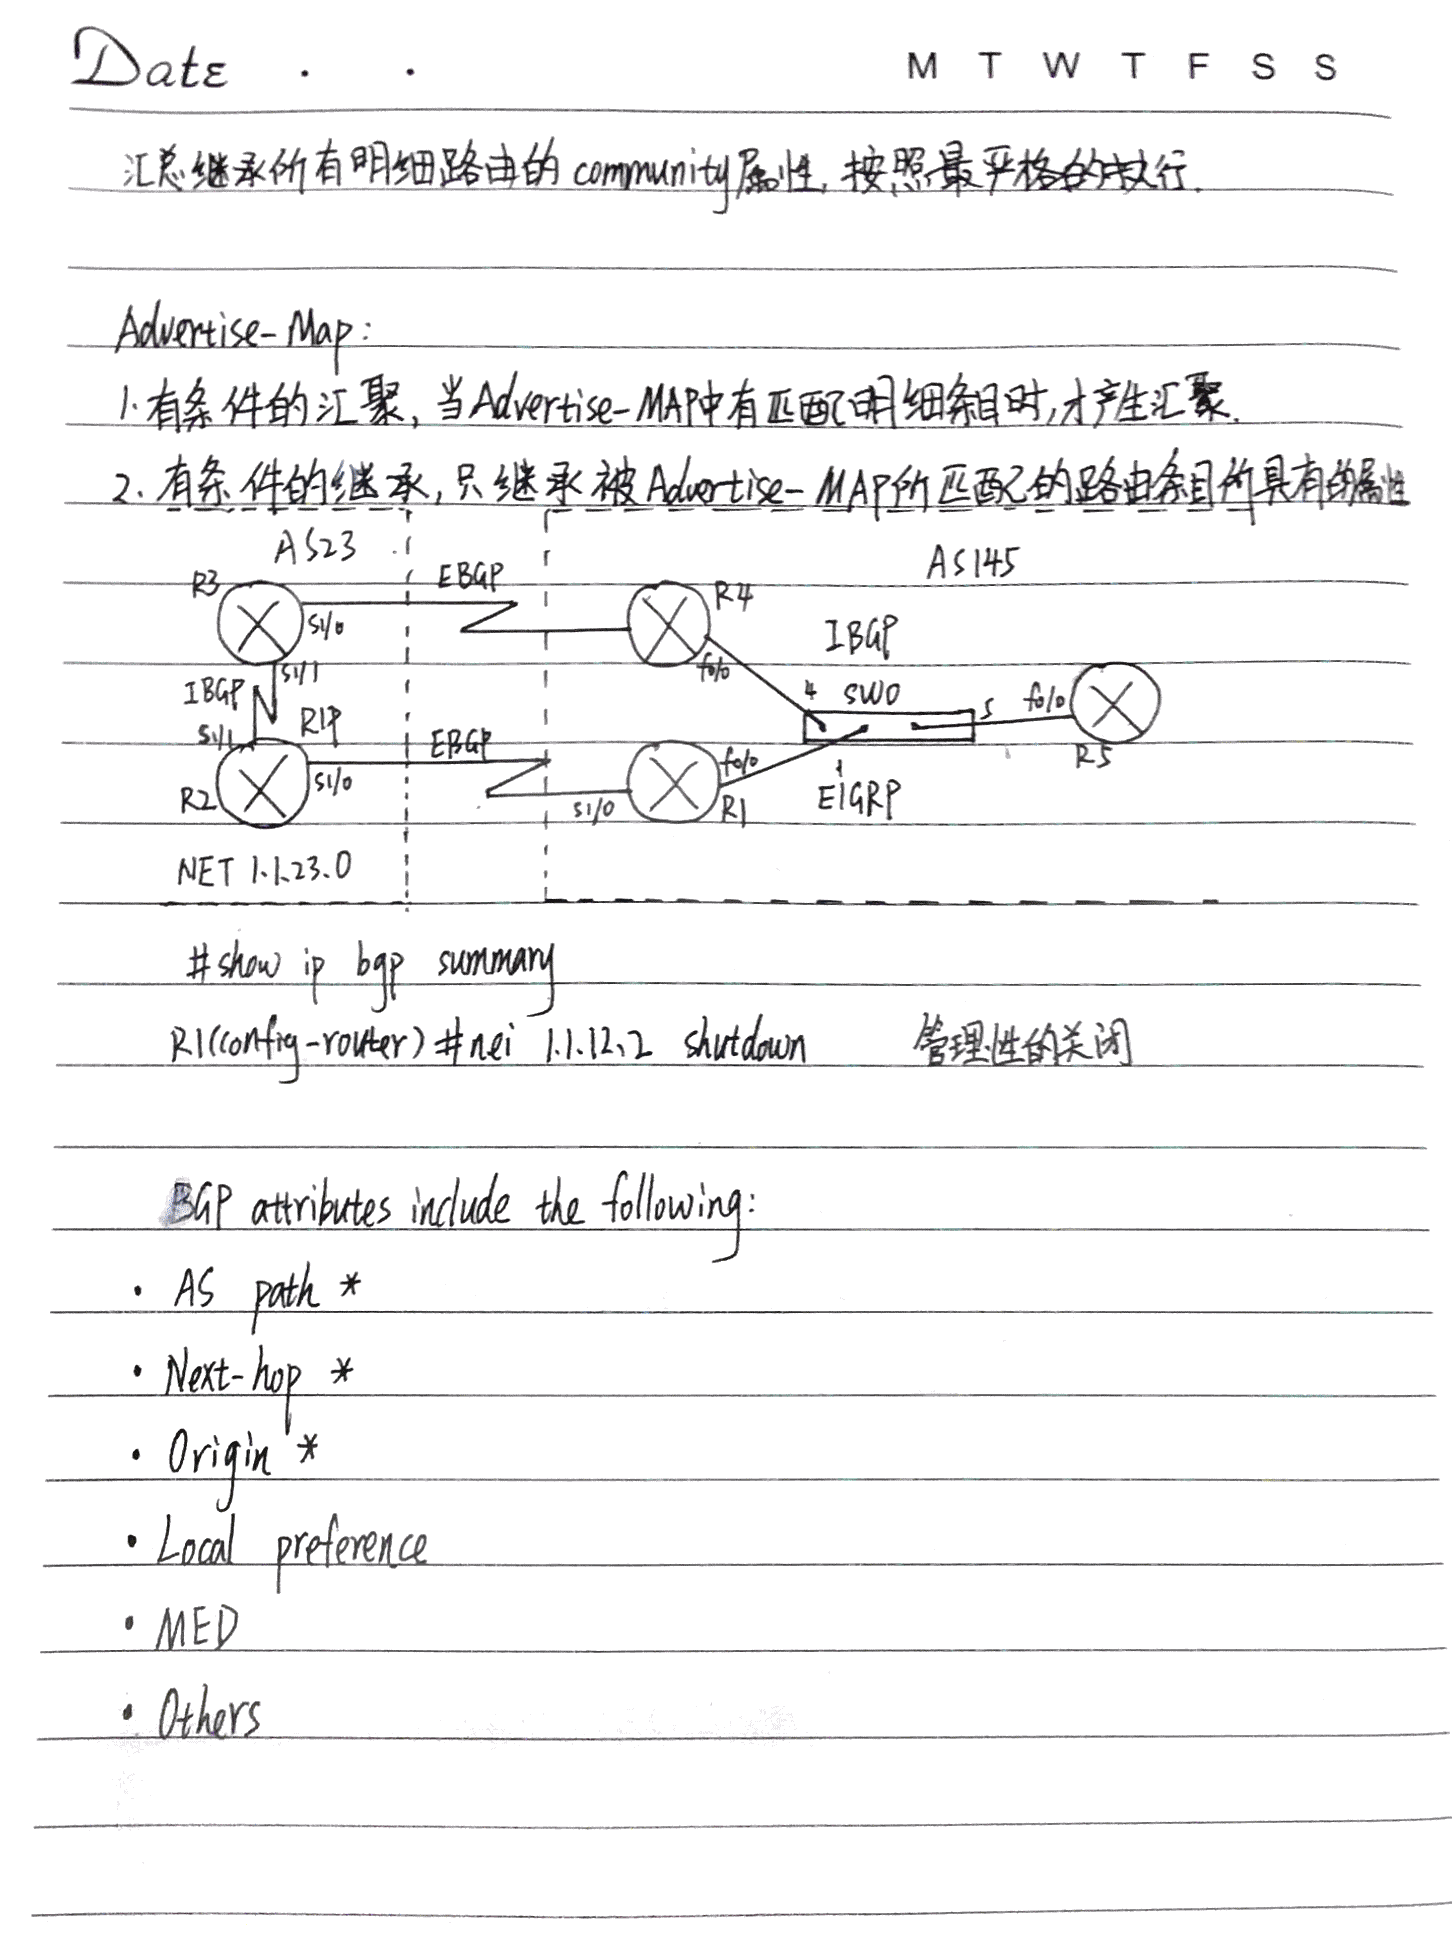 Date . . M T W T F S S
汇总继承所有明细路由的community属性,按照最严格的执行.
Advertise-Map:
1.有条件的汇聚,当Advertise-MAP中有匹配明细条目时,才产生汇聚.
2.有条件的继承,只继承被Advertise-MAP所匹配的路由条目所具有的属性
AS23
AS145
R3
EBGP
R4
S1/0
IBGP
f0/0
S1/1
IBGP
4
SW0
5
f0/0
RIP
S1/1
EBGP
f0/0
R5
R2
S1/0
S1/0
R1
1
EIGRP
NET 1.1.23.0
#show ip bgp summary
R1(config-router)#nei 1.1.12.2 shutdown 管理性的关闭
BGP attributes include the following:
• AS path *
• Next-hop *
• Origin *
• Local preference
• MED
• Others